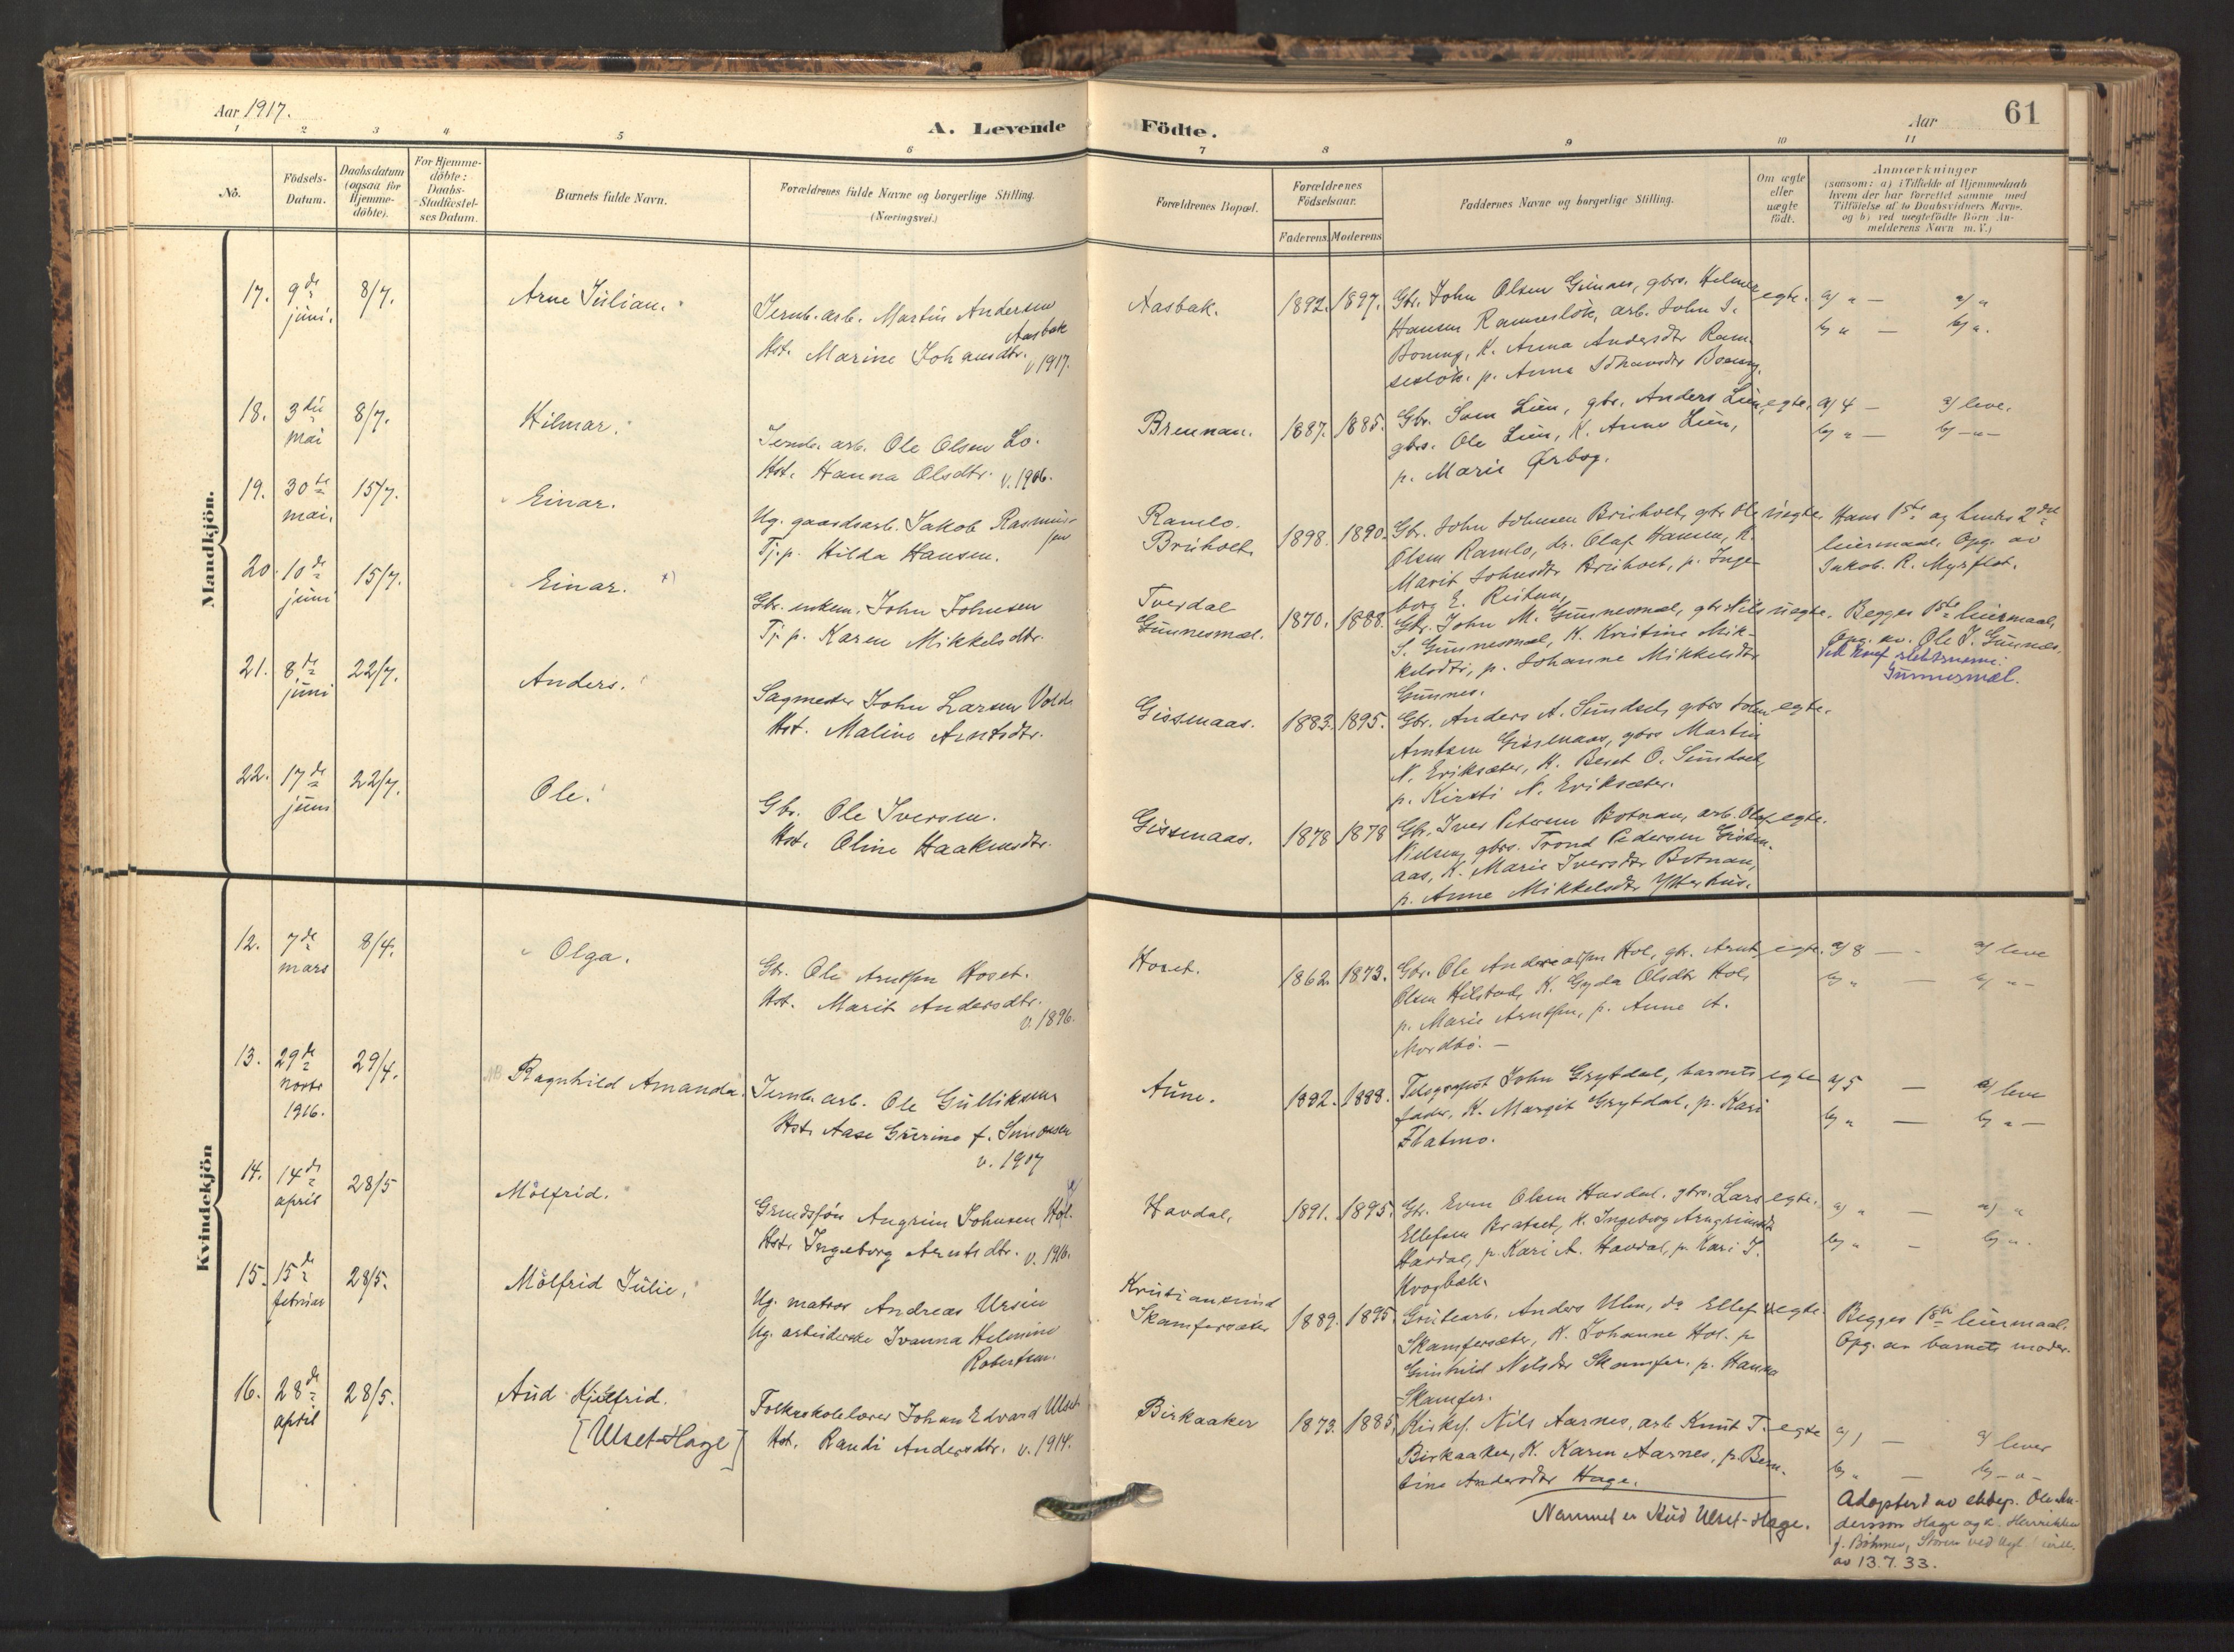 Aar 1917.
A. Levende
Födte.
Aar
61
1 2 3 4 5 6 7 8 9 10 11
No.
Födsels-
Datum.
Daabsdatum
(ogsaa for
Hjemme-
döbte).
For Hjemme-
döbte:
Daabs-
Stadfæstel-
ses Datum.
Barnets fulde Navn.
Forældrenes fulde Navne og borgerlige Stilling.
(Næringsvei.)
Forældrenes Bopæl.
Forældrenes
Födselsaar.
Faderens Moderens
Faddernes Navne og borgerlige Stilling.
Om ægte
eller
uægte
födt.
Anmærkninger
(saasom: a) i Tilfælde af Hjemmedaab
hvem der har forrettet samme med
Tilföielse af to Daabsvidners Navne.
og b) ved uægtefödte Börn An-
melderens Navn m. V.)
Mandkjön.
17. 9de juni. 8/7. Arne Julian.
Jernb. arb. Martin Andersen
Aasbak
Hst. Marine Johansdtr. v 1917.
Aasbak. 1892. 1897.
Gbr. John Olsen Gunnes, gbrs. Helmer
Hansen Ramsesløk, arb. John J.
Boning, K. Anna Andersdtr Ram-
sesløk. p. Anna Johansdtr Boning.
egte. a/ " — a/ "
b/ " — b/ ".
18. 3die mai 8/7. Hilmar.
Jernb. arb. Ole Olsen Lo.
Hst. Hanna Olsdtr. v. 1906.
Brennan. 1887. 1885.
Gbr. Sven Lien, gbr. Anders Lien,
gbrs. Ole Lien, K. Anne Lien,
p. Marie Ørbog.
egte. a/ 4 — a/ leve.
b/ " — b/ — " —
19. 30te mai. 15/7. Einar.
Ug. gaardsarb. Jakob Rasmus-
sen
Tj. p. Hilda Hansen.
Ramlo.
1898. 1890.
Gbr. John Johnsen Bruholt, gbr. Ole
Olsen Ramlo, dr. Olaf Hansen, K.
Marit Johnsdtr Bruholt, p. Inge-
borg E.
uegte. Hans 1ste og hendes 2det
leiermaal. Opg. av
Jakob. R. Myrflot.
20. 10de juni 15/7. Einar. x)
Gbr. enkem. John Johnsen
Tj. p. Karen Mikkelsdtr.
Tverdal
Gunnesmæl. 1870. 1888.
Gbr. John M. Gunnesmæl, gbr Nils
S. Gunnesmæl, K. Kristine Mik-
kelsdtr, p. Johanne Mikkelsdtr
Gunnes.
uegte. Begges 1ste leiermaal.
Opg. av. Ole J. Gunnes.
Gunnesmæl.
21. 8de juni 22/7. Anders.
Sagmester John Larsen Vold.
Hst. Maline Arntsdtr.
Gissenaas. 1883. 1895.
Gbr. Anders A. Sundset, gbrs John
Arntsen Gissenaas, gbrs Martin
N. Eriksæter, K. Beret O. Sundset,
p. Kirsti N. Eriksæter.
egte.
22. 17de juni 22/7. Ole.
Gbr. Ole Iversen.
Hst. Oline Haakensdtr.
Gissenaas. 1878 1878
Gbr. Iver Petersen Botnan, arb. Olaf
Nielsen, gbrs. Trond Pedersen Gissen-
aas, K. Marie Iversdtr Botnan,
p. Anne Mikkelsdtr Ytterhus.
egte.
Kvindekjön
12. 7de mars 8/4. Olga.
Gbr. Ole Arntsen Hoset.
Hst. Marit Andersdtr.
v. 1896.
Hoset. 1862. 1873.
Gbr. Ole Andreassen Hol, gbr. Arnt
Olsen Hilstad, K. Gyda Olsdtr Hol,
p. Marie Arntsen, p. Anne A.
Nordbø. —
egte. a/ 8 — a/ leve
b/ " — b/ " —
13. 29de novbr 1916. 29/4. NB Ragnhild Amanda.
Jernb. arb. Ole Gulliksen
Hst. Aase Gurine f. Simonsen
v. 1907
Aune. 1882. 1888.
Telegrafist John Grytdal, barnets
fader, K. Margit Grytdal, p. Kari
Flatmo.
egte a/ 5 — a/ leve
b/ " — b/ " —
14. 14de april 28/5 Målfrid.
Grundsjøn Angrim Johnsen Hol.
Hst. Ingeborg Arntsdtr. v. 1916.
Havdal, 1891. 1895.
Gbr. Even Olsen Havdal. gbrs. Lars
Ellefsen Bratset, K. Ingeborg Arngrimsdtr
Havdal, p. Kari A. Havdal, p. Kari J.
Krogbæk.
egte. a/ " — a/ "
b/ " — b/ ".
15. 15de februar 28/5. Målfrid Julie.
Ug. matros Andreas Ursin
Ug. arbeiderske Ivanna Helmine
Robertsen.
Kristiansund
Skamfersæter 1889. 1895.
Grubearb. Anders Ulen, do Ellef
Skamfersæter, K. Johanne Hol. p
Gunhild Nilsdtr Skamfer. p. Hanna
Skamfer.
uegte. Begges 1ste leiermaal.
Opg. av barnets moder.
16. 28de april 28/5. Aud Hjelfrid.
[Ulset-Hage]
Folkeskolelærer Johan Edvard Ulset
Hst. Randi Andersdtr. v. 1914.
Birkaaker 1873. 1885.
Kirkes. Nils Aarnes, arb Knut T.
Birkaaker, K. Karen Aarnes, p. Bern-
tine Andersdtr Hage.
Navnet er Aud Ulset-Hage.
egte a/ 1 — a/ lever
b/ " — b/ — " —
Adoptert av ektep. Ole An-
dersson Hage og h. Henrikke
f. Böhmer, Støren ved kgl.
av 13.7.33.